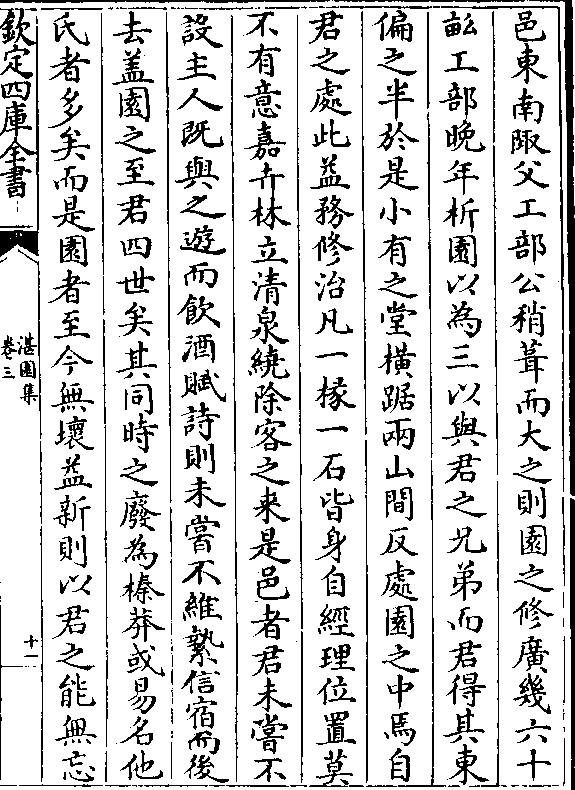 邑東南陬父工部公稍葺而大之則園之修廣幾六十
畝工部晚年析園以為三以與君之兄弟而君得其東
偏之半於是小有之堂横踞兩山間反處園之中焉自
君之處此益務修治凡一椽一石皆身自經理位置莫
不有意嘉卉林立清泉繞除客之来是邑者君未嘗不
設主人既與之遊而飲酒賦詩則未嘗不維縶信宿而後
去盖園之至君四世矣其同時之廢為榛莽或易名他
氏者多矣而是園者至今無壞益新則以君之能無忘
欽定四庫全書
湛園集
卷三
十一